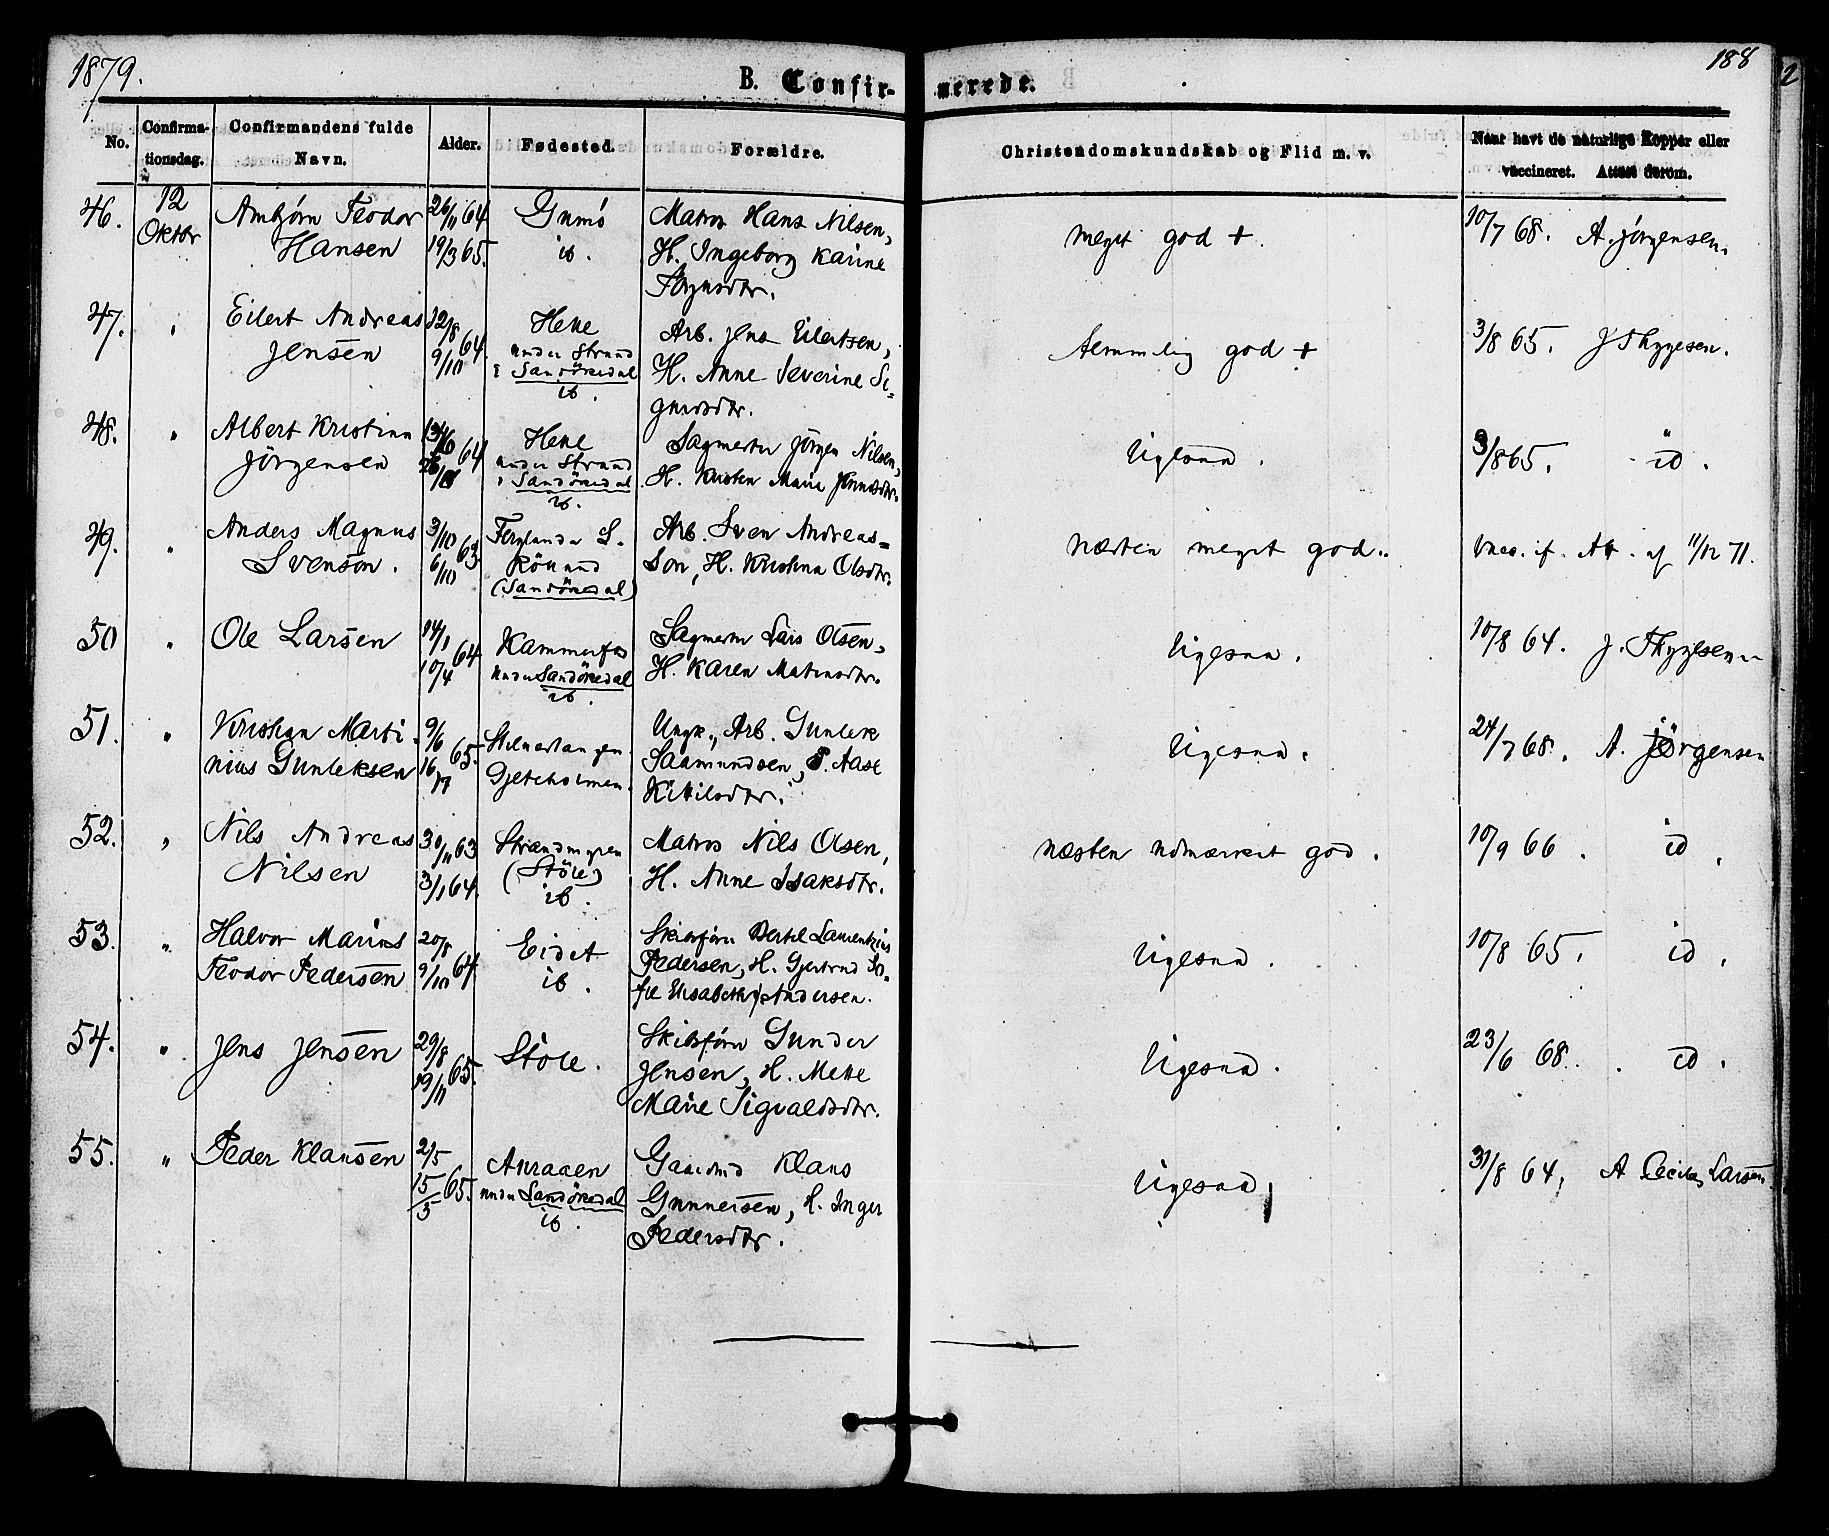 1879.
188
B. Confir- merede.
No.
Confirma-
tionsdag.
Confirmandens fulde
Navn.
Alder.
Fødested.
Forældre.
Christendomskundskab og Flid m. v.
Naar havt de naturlige Kopper eller
vaccineret. Attest derom.
46. 12 Oktbr
Ambjørn Teodor
Hansen
26/11 64
19/3 65.
ib.
Matros Hans Nilsen,
H. Ingeborg Karine
meget god +.
10/7 68. A. Jørgensen.
47. "
Eilert Andreas
Jensen
12/8 64
9/10
under Strand
i Sandökedal
ib.
Arb. Jens Eilertsen,
H. Anne Severine Si-
gnusdtr.
temmelig god +
3/8 65. J Thygesen.
48. "
Albert Kristian
Jørgensen
64
under Strand
i Sandökedal
ib.
Sagmester Jörgen Nilsen,
H. Kirsten Marie
ligesaa.
3/8 65. id.
49. "
Anders Magnus
Svenson.
3/10 63.
6/10
(Sandökedal)
Arb. Sven Andreas=
son, H. Kristina Olsdtr.
næsten meget god.
Vacc. if. Att. af 11/12 71.
50 "
Ole Larsen
14/1 64
10/4
Kammerfos
under Sandökedal
ib.
Sagmester Lars Olsen,
H. Karen
ligesaa.
10/8 64. J. Thygesen
51. "
Kristian Marti-
nius Gunleksen
9/6 65.
16/7
Ungk., Arb. Gunlek
Saamundsen, P. Aase
Kittilsdtr.
ligesaa.
24/7 68. A. Jörgensen
52. "
Nils Andreas
Nilsen
30/11 63
3/1 64.
Strandmyren
(Støle)
ib.
Matros Nils Olsen,
H. Anne Isaksdtr.
næsten udmærket god.
10/9 66. id.
53. "
Halvor Marius
Teodor Pedersen
20/8 64
9/10
Eidet
ib.
Skibsförer Bertel Laurentzius
Pedersen, H. Gjertrud So-
fie Elisabeth Andersen.
ligesaa.
10/8 65. id.
54. "
Jens Jensen
29/8 65.
19/11
Støle.
Skibsförer Gunder
Jensen, H. Mette
Marie Sigvaldsdtr.
ligesaa.
23/6 68. id.
55. "
Peder Klausen
2/5 65.
15/5
under Sandökedal
ib.
Gaardmd Klaus
Gunnersen, H. Inger
Pedersdtr.
ligesaa,
31/8 64, A Cecilie Larsen.